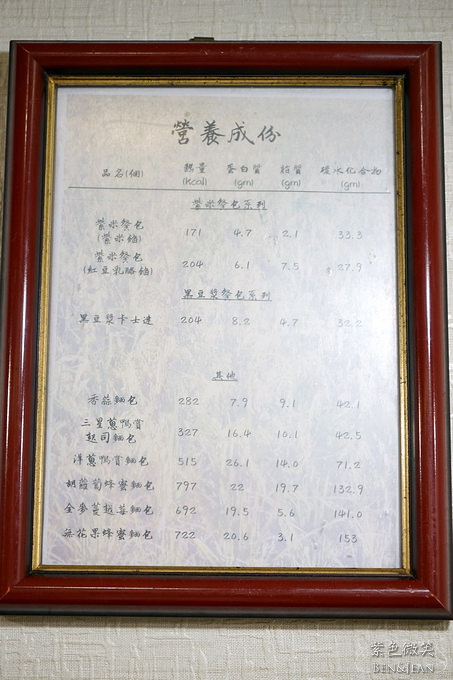 營養成份
品名(個) 熱量 蛋白質 脂質 碳水化合物
(Kcal) (gm) (gm) (gm)
紫米餐包系列
紫米餐包
(紫米餡) 171 4.7 2.1 33.3
紫米餐包
(紅豆乳酪餡) 204 6.1 7.5 27.9
黑豆漿餐包系列
黑豆漿卡士達 204 8.2 4.7 32.2
其他
香蒜麵包 282 7.9 9.1 42.1
三星蔥鴨賞
起司麵包 327 16.4 10.1 42.5
洋蔥鴨賞麵包 515 26.1 14.0 71.2
胡蘿蔔蜂蜜麵包 797 22 19.7 132.9
全麥蔓越莓麵包 692 19.5 5.6 141.0
無花果蜂蜜麵包 722 20.6 3.1 153
紫色微笑
BEN&JEAN